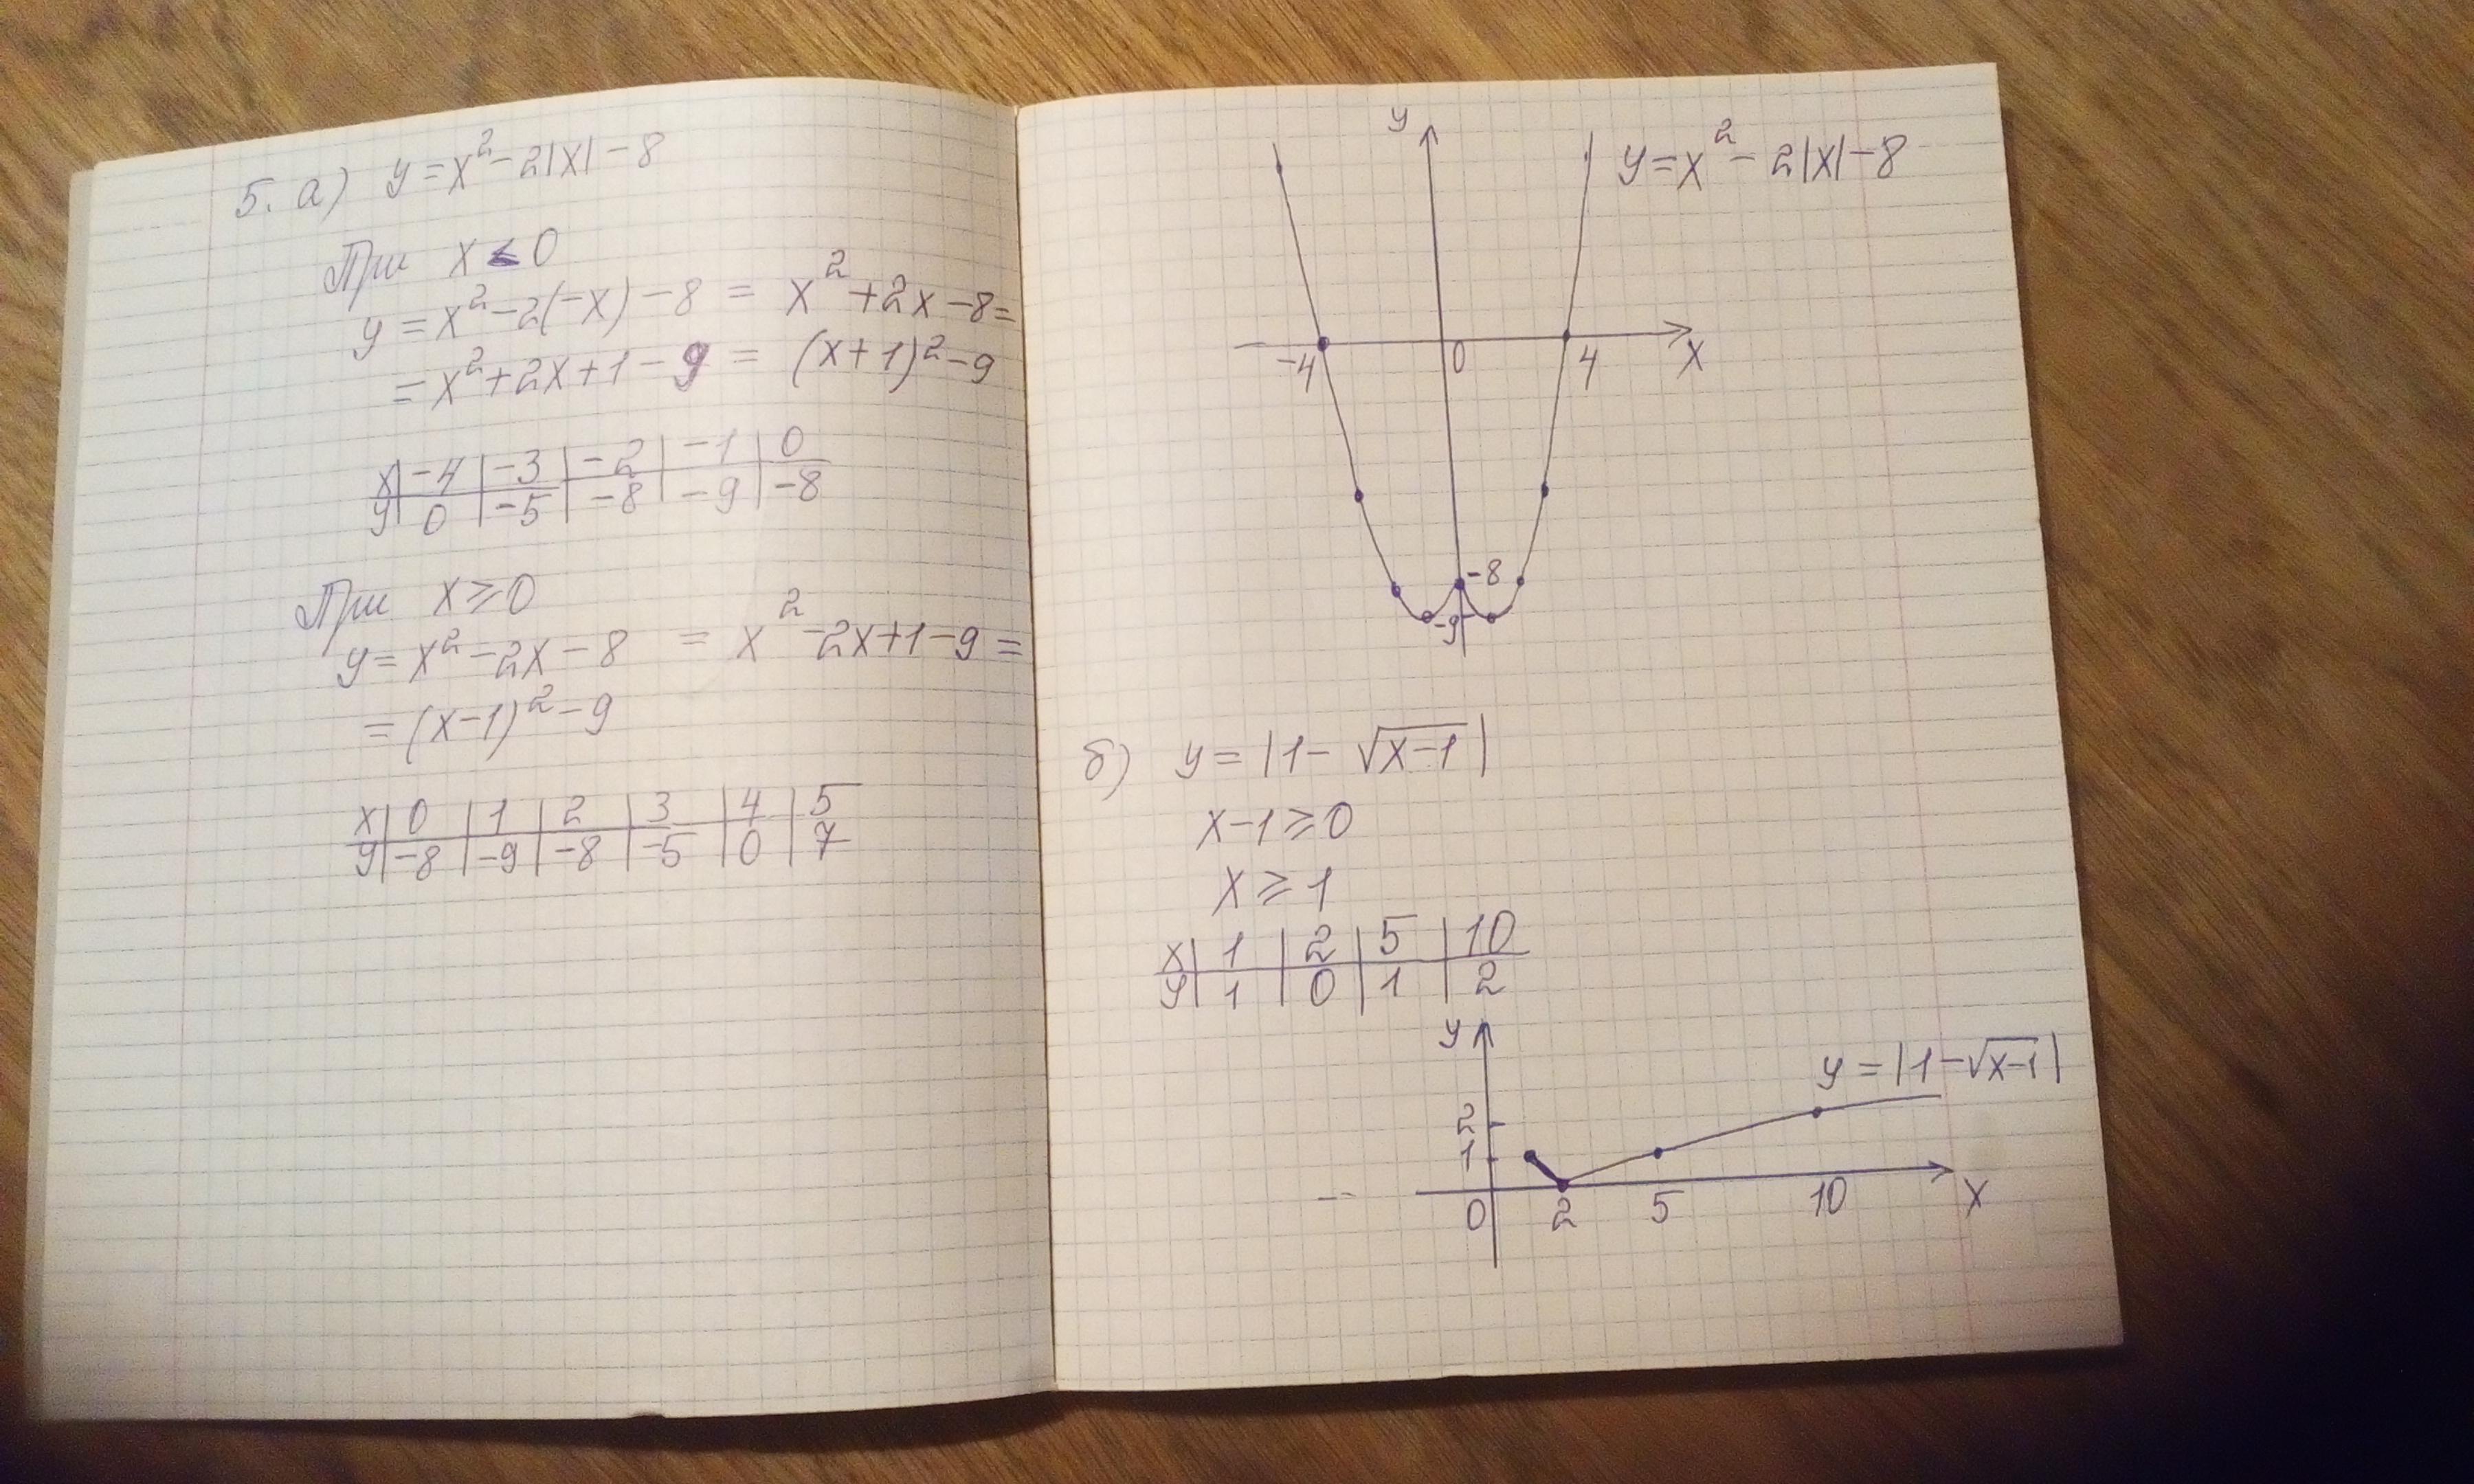 5. а) y = x² - 2|x| - 8
При x ≤ 0
y = x² - 2(-x) - 8 = x² + 2x - 8 =
= x² + 2x + 1 - 9 = (x + 1)² - 9
x | -4 | -3 | -2 | -1 | 0
y | 0 | -5 | -8 | -9 | -8
При x ⩾ 0
y = x² - 2x - 8 = x² - 2x + 1 - 9 =
= (x - 1)² - 9
x | 0 | 1 | 2 | 3 | 4 | 5
y | -8 | -9 | -8 | -5 | 0 | 7
y
y = x² - 2|x| - 8
-4 0 4 x
-8
-9
б) y = |1 - √(x-1)|
x - 1 ⩾ 0
x ⩾ 1
x | 1 | 2 | 5 | 10
y | 1 | 0 | 1 | 2
y
y = |1 - √(x-1)|
2
1
0 2 5 10 x